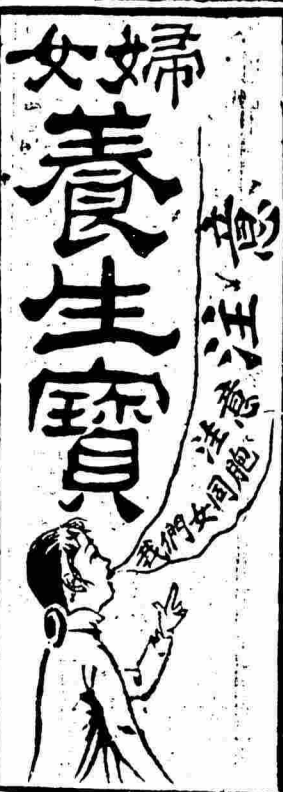 婦女
養生寶
我們女同胞
注意
注意